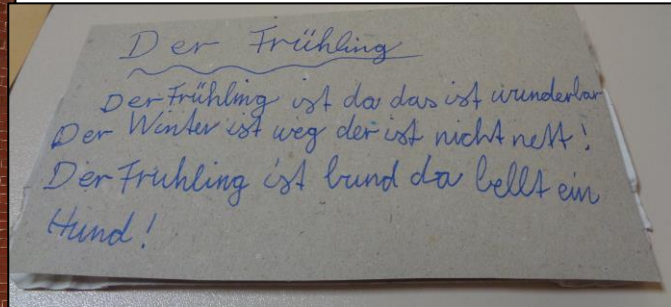 Der Frühling
Der Frühling ist da das ist wunderbar
Der Winter ist weg der ist nicht nett!
Der Fruhling ist bund da bellt ein
Hund!